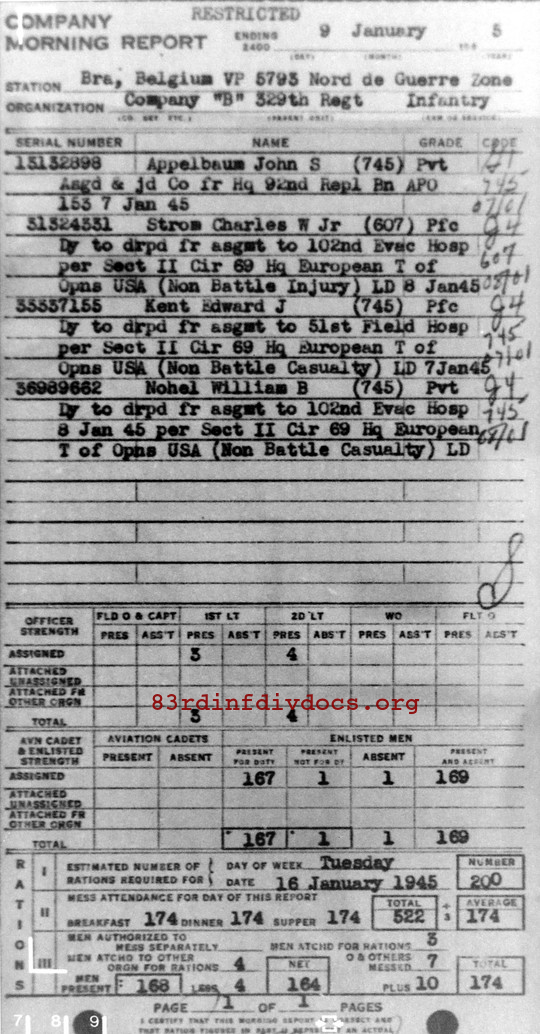 RESTRICTED
COMPANY
MORNING REPORT
ENDING 2400 9 January 5
(DAY) (MONTH) (YEAR)
STATION Bra, Belgium VP 5793 Nord de Guerre Zone
ORGANIZATION Company "B" 329th Regt Infantry
SERIAL NUMBER NAME GRADE CODE
13132898 Appelbaum John S (745) Pvt
Asgd & jd Co fr Hq 92nd Repl Bn APO 745
153 7 Jan 45 07/01
31324331 Strom Charles W Jr (607) Pfc
Dy to drpd fr asgmt to 102nd Evac Hosp
per Sect II Cir 69 Hq European T of 607
Opns USA (Non Battle Injury) LD 8 Jan45 08/01
35537155 Kent Edward J (745) Pfc
Dy to drpd fr asgmt to 51st Field Hosp
per Sect II Cir 69 Hq European T of 745
Opns USA (Non Battle Casualty) LD 7Jan45 07/01
36989662 Nohel William B (745) Pvt
Dy to drpd fr asgmt to 102nd Evac Hosp 745
8 Jan 45 per Sect II Cir 69 Hq European 08/01
T of Opns USA (Non Battle Casualty) LD
OFFICER STRENGTH FLD O & CAPT 1ST LT 2D LT WO FLT O
PRES ABS'T PRES ABS'T PRES ABS'T PRES ABS'T PRES ABS'T
ASSIGNED 3 4
ATTACHED UNASSIGNED
ATTACHED FR OTHER ORGN
83rdinfdivdocs.org
TOTAL 3 4
AVN CADET & ENLISTED STRENGTH AVIATION CADETS ENLISTED MEN
PRESENT ABSENT PRESENT FOR DUTY PRESENT NOT FOR DY ABSENT PRESENT AND ABSENT
ASSIGNED 167 1 1 169
ATTACHED UNASSIGNED
ATTACHED FR OTHER ORGN
TOTAL 167 1 1 169
RATIONS
I ESTIMATED NUMBER OF RATIONS REQUIRED FOR DAY OF WEEK Tuesday NUMBER
DATE 16 January 1945 200
II MESS ATTENDANCE FOR DAY OF THIS REPORT TOTAL ÷ 3 AVERAGE
BREAKFAST 174 DINNER 174 SUPPER 174 522 174
III MEN AUTHORIZED TO MESS SEPARATELY MEN ATCHD FOR RATIONS 3
MEN ATCHD TO OTHER ORGN FOR RATIONS 4 NET O & OTHERS MESSED 7 TOTAL
MEN PRESENT 168 LESS 4 164 PLUS 10 174
PAGE 1 OF 1 PAGES
I CERTIFY THAT THIS MORNING REPORT IS CORRECT AND
THAT RATION FIGURES IN PART II REPRESENT AN ACTUAL
7 8 9